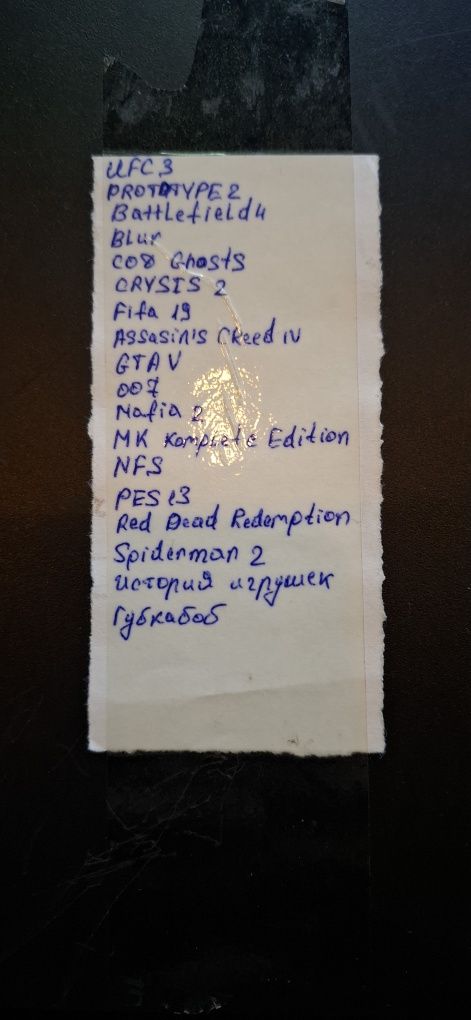 UFC 3
PROTOTYPE 2
Battlefield 4
Blur
COD Ghosts
CRYSIS 2
Fifa 19
Assasin's Creed IV
GTA V
007
Mafia 2
MK Komplete Edition
NFS
PES 13
Red Dead Redemption
Spiderman 2
История игрушек
Губкабоб